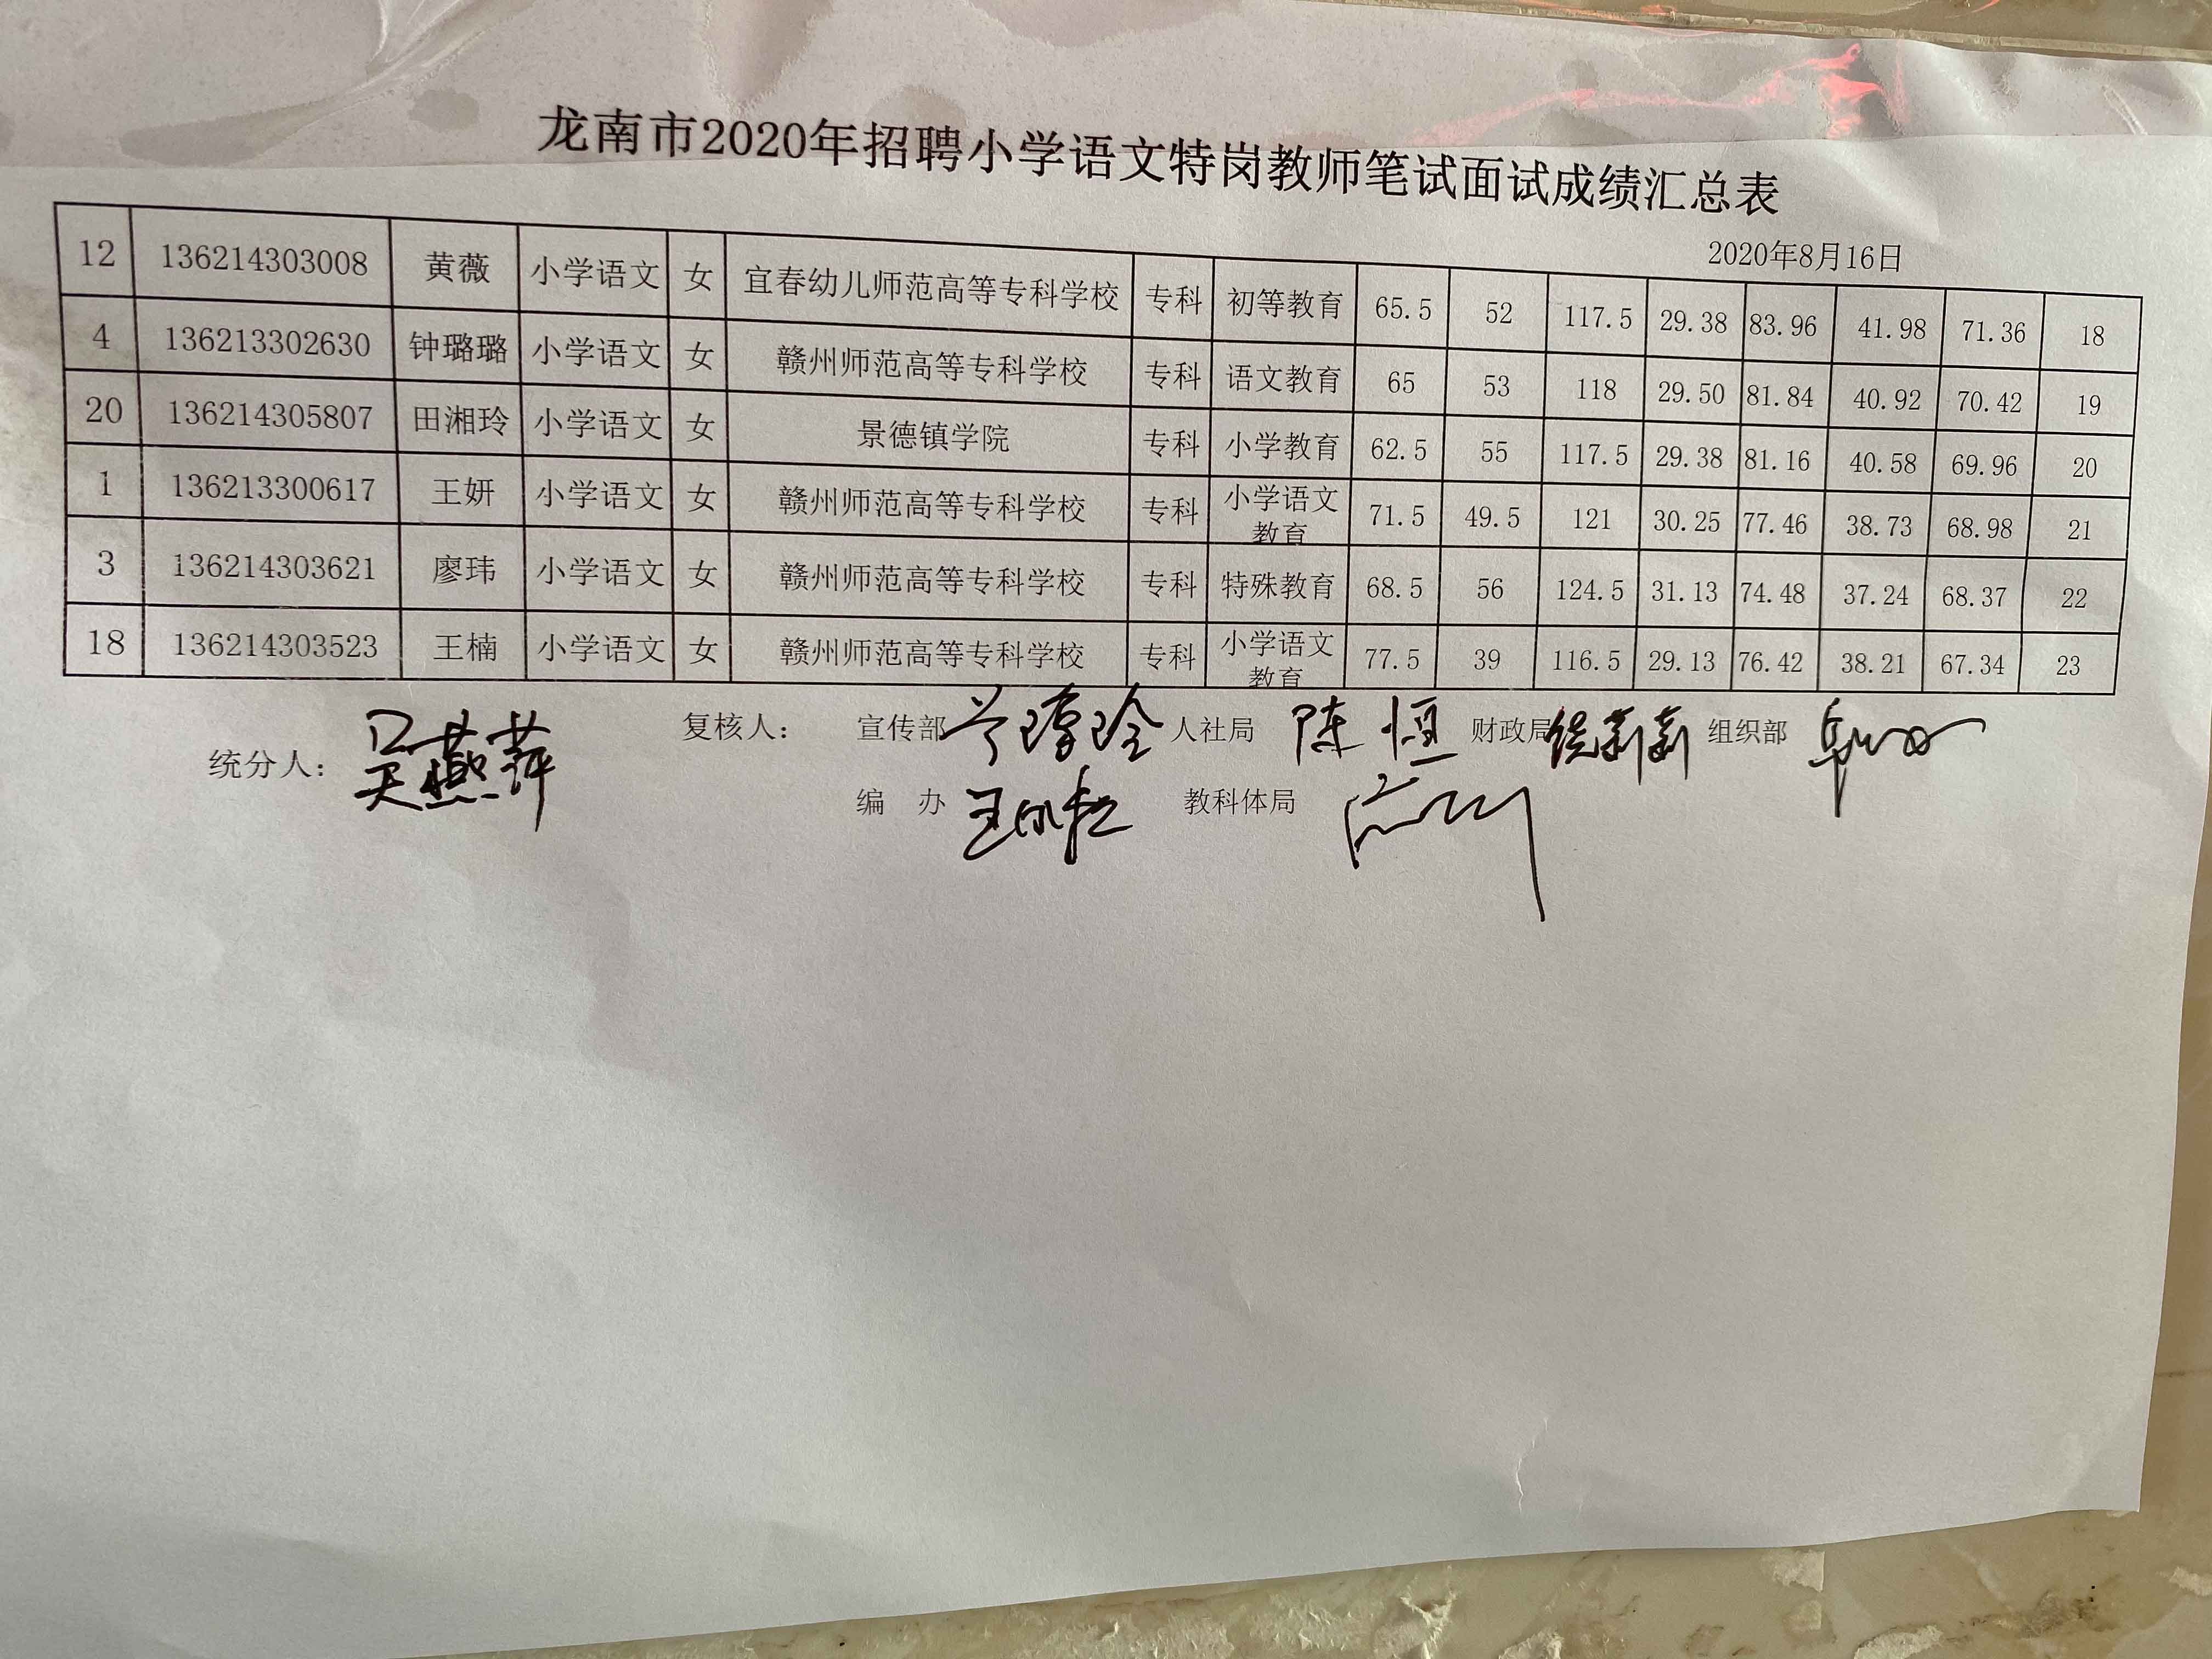 龙南市2020年招聘小学语文特岗教师笔试面试成绩汇总表
2020年8月16日
12 136214303008 黄薇 小学语文 女 宜春幼儿师范高等专科学校 专科 初等教育 65.5 52 117.5 29.38 83.96 41.98 71.36 18
4 136213302630 钟璐璐 小学语文 女 赣州师范高等专科学校 专科 语文教育 65 53 118 29.50 81.84 40.92 70.42 19
20 136214305807 田湘玲 小学语文 女 景德镇学院 专科 小学教育 62.5 55 117.5 29.38 81.16 40.58 69.96 20
1 136213300617 王妍 小学语文 女 赣州师范高等专科学校 专科 小学语文教育 71.5 49.5 121 30.25 77.46 38.73 68.98 21
3 136214303621 廖玮 小学语文 女 赣州师范高等专科学校 专科 特殊教育 68.5 56 124.5 31.13 74.48 37.24 68.37 22
18 136214303523 王楠 小学语文 女 赣州师范高等专科学校 专科 小学语文教育 77.5 39 116.5 29.13 76.42 38.21 67.34 23
统分人： 吴燕萍 复核人： 宣传部 人社局 陈恒 财政局 组织部
编 办 教科体局